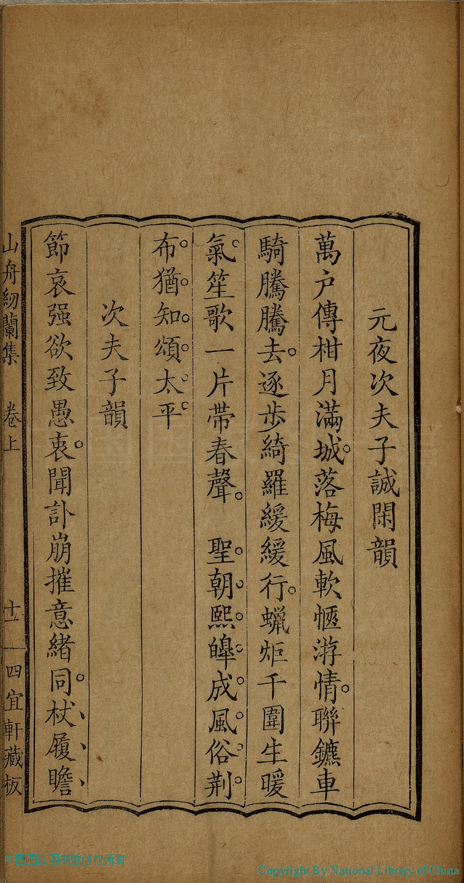 元夜次夫子誠閑韻
萬戸傳柑月滿城落梅風軟愜游情聯鑣車
騎騰騰去逐步綺羅緩緩行蠟炬千圍生暖
氣笙歌一片帶春聲　聖朝熙皞成風俗荆
布猶知頌太平
次夫子韻
節哀强欲致愚衷聞訃崩摧意緒同杖履瞻
山舟紉蘭集　卷上　十一　四宜軒藏板
Copyright By National Library of China